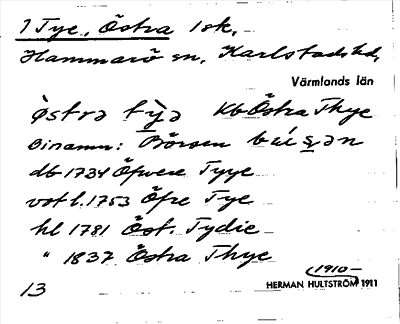 7 Tye, Östra 1 sk.
Hammarö sn, Karlstads hd,
Värmlands län
òstrə tỳə Kb Östra Thye
Binamn: Börsen
db 1734 Öfvere Tyye
vot l. 1753 Öfre Tye
hl 1781 Öst. Tydie
" 1837 Östra Thye
1910-
HERMAN HULTSTRÖM 1911
13